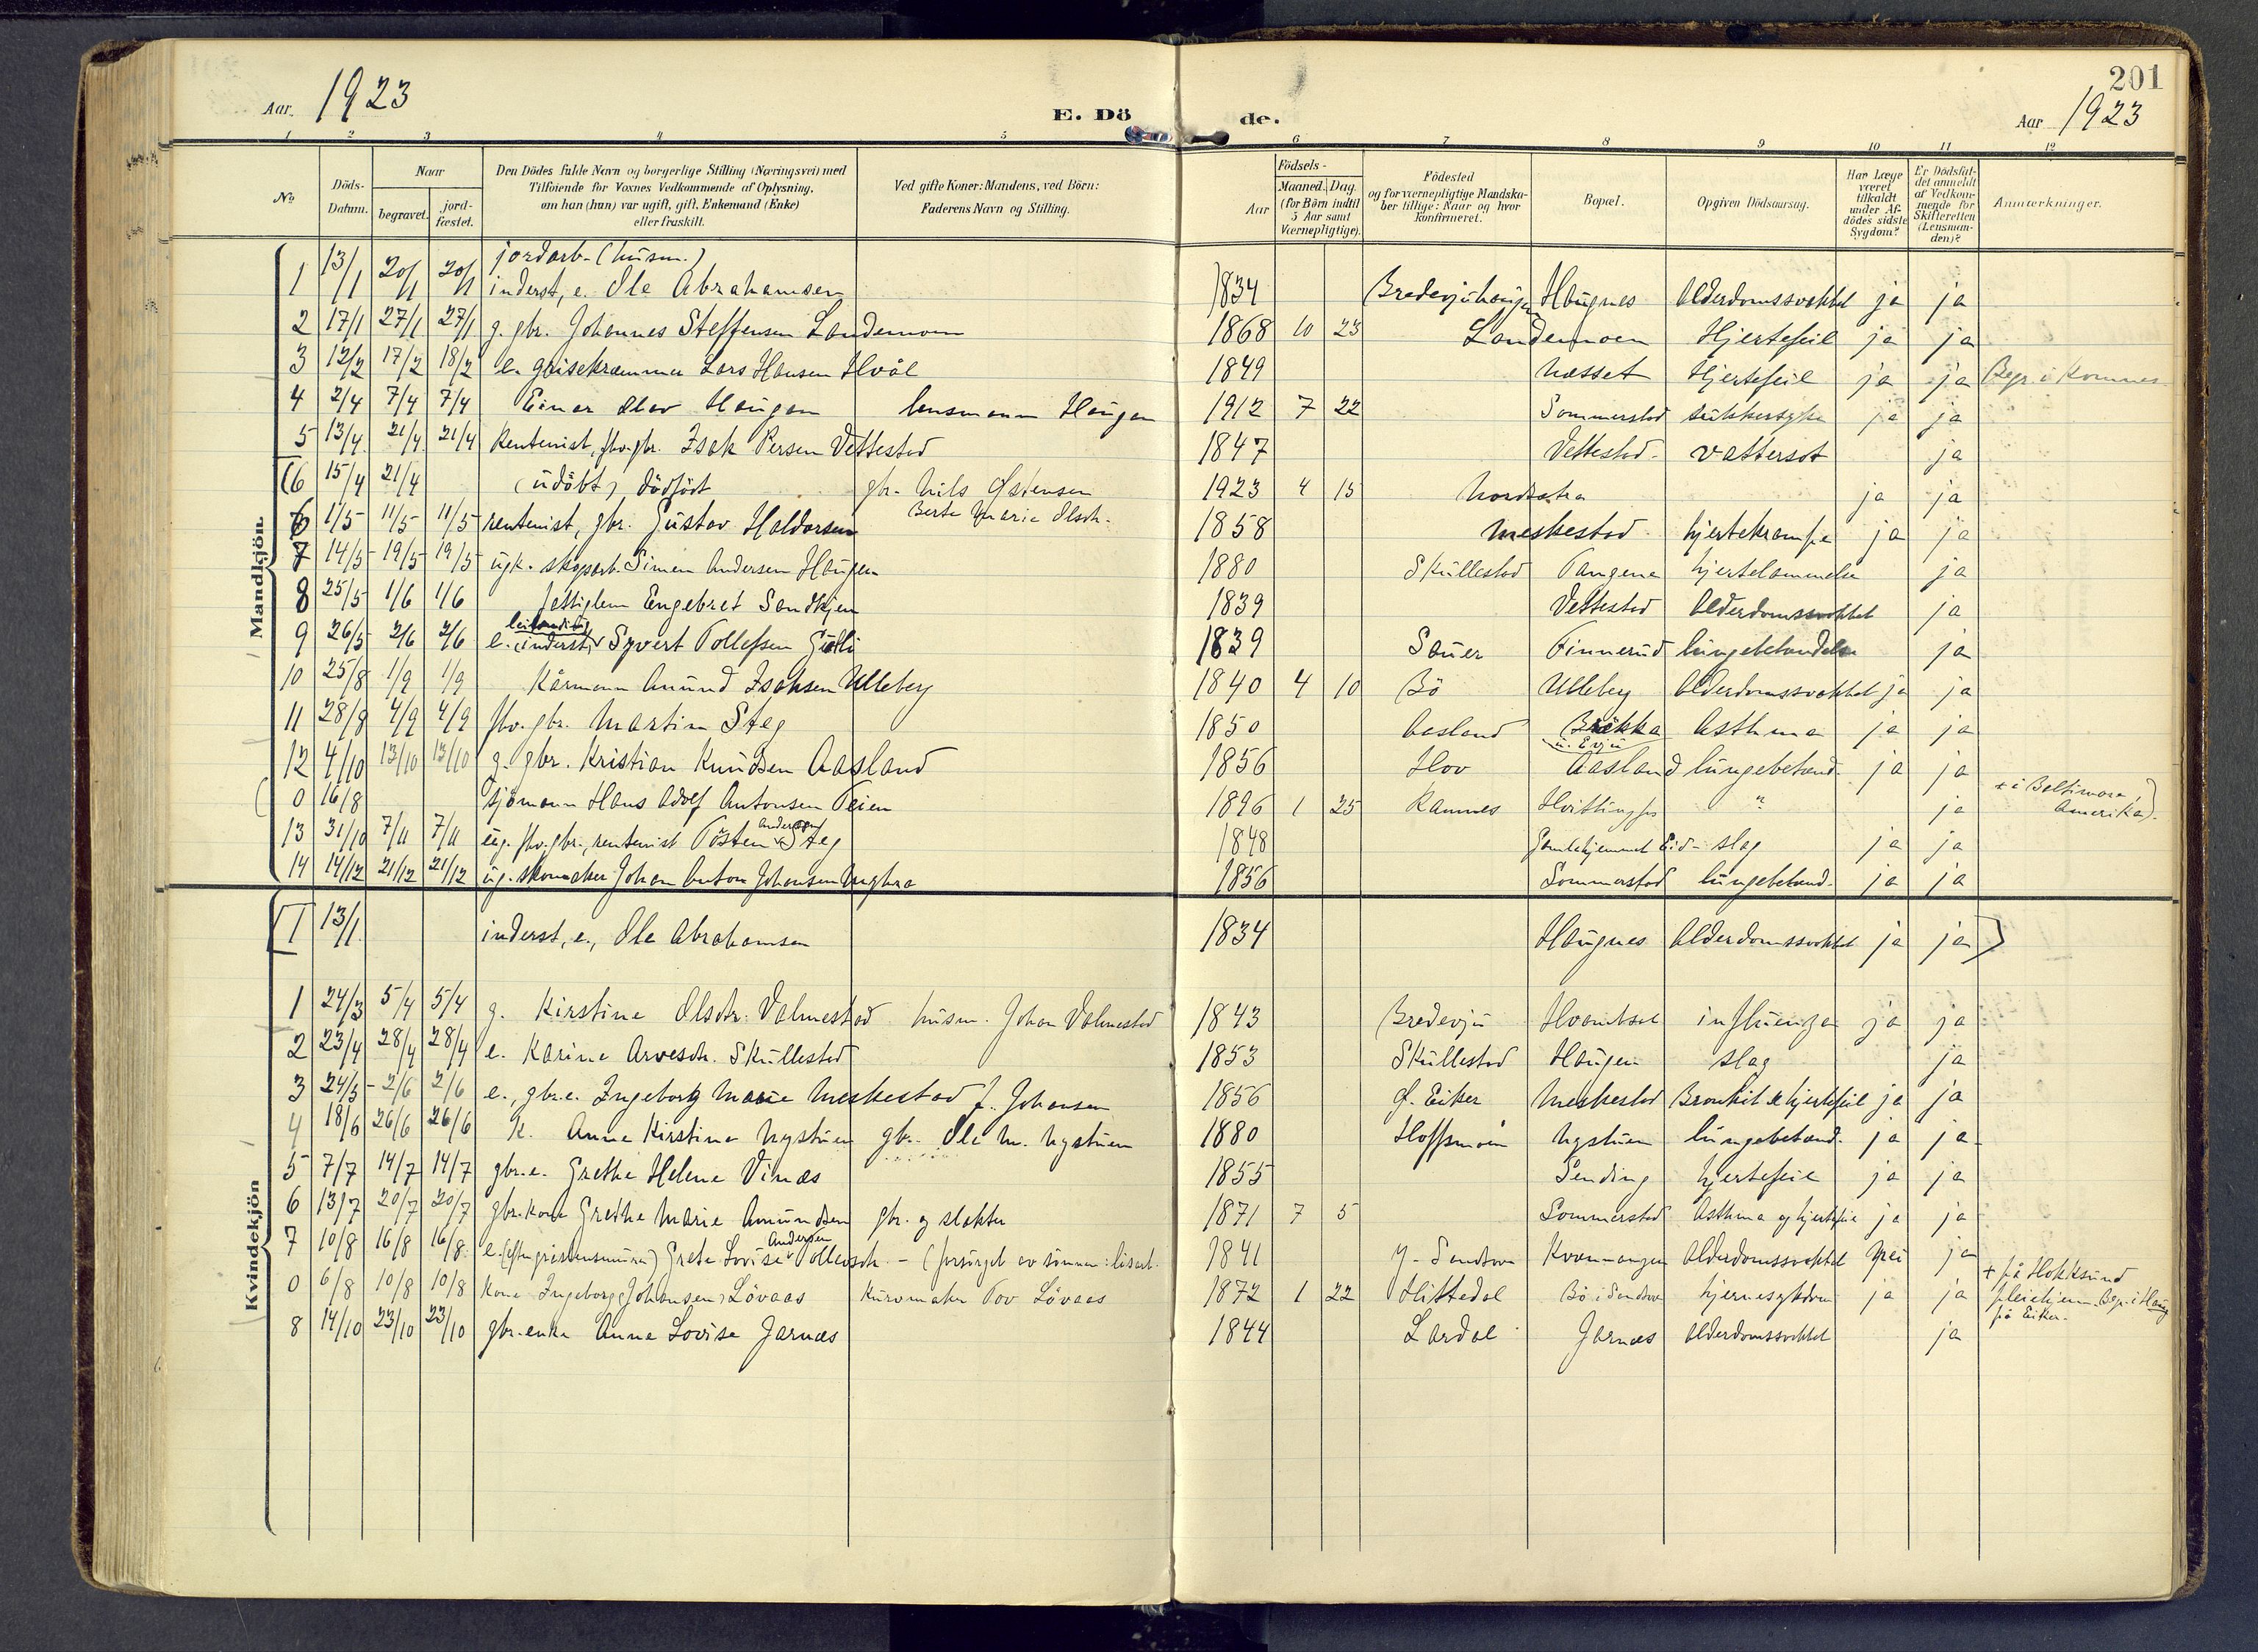 201
Aar 1923
E. Döde.
Aar 1923
1 2 3 4 5 6 7 8 9 10 11 12
No
Döds-Datum.
Naar
begravet.
jord-fæstet.
Den Dödes fulde Navn og borgerlige Stilling (Næringsvei) med
Tilföiende for Voxnes Vedkommende af Oplysning,
om han (hun) var ugift, gift, Enkemand (Enke)
eller fraskilt.
Ved gifte Koner: Mandens, ved Börn:
Faderens Navn og Stilling.
Födsels-
Aar
Maaned. Dag.
(for Börn indtil
5 Aar samt
Værnepligtige).
Födested
og for værnepligtige Mandska-
ber tillige: Naar og hvor
konfirmeret.
Bopæl.
Opgiven Dödsaarsag.
Har Læge
været
tilkaldt
under Af-
dödes sidste
Sygdom?
Er Dödsfal-
det anmeldt
af Vedkom-
mende for
Skifteretten
(Lensman-
den)?
Anmærkninger.
Mandkjön.
jordarb. (husm.)
1 13/1 20/1 20/1 inderst, e. Ole Abrahamsen 1834 Haugnes Alderdomssvakhet ja ja
2 17/1 27/1 27/1 g. gbr. Johannes Steffensen Landemoen 1868 10 23 Landemoen Hjertefeil ja ja
3 12/2 17/2 18/2 e. grisekræmmer Lars Hansen Hvål 1849 Næsset Hjertefeil ja ja Begr. i Komnes
4 2/4 7/4 7/4 Einar Olav Haugan lensmann Haugan 1912 7 22 Sommerstad sukkersyke ja ja
5 13/4 21/4 21/4 Rentenist, fhv. gbr. Isak Persen Vettestad 1847 Vettestad vattersot ja
(6 15/4 21/4 (udöbt) dödfödt gbr. Nils Østensen 1923 4 15 ja ja
Berte Marie Olsdr.
6 1/5 11/5 11/5 rentenist, gbr. Gustav Haldorsen 1858 Meskestad hjertekrampe ja ja
7 14/5 19/5 19/5 ugk. skogarb. Simen Andersen Haugen 1880 Skullestad Tangene hjertelammelse ja
8 25/5 1/6 1/6 fattiglem Engebret Sandkjen 1839 Vettestad Alderdomssvakhet ja
9 26/5 2/6 2/6 e. inderst Syvert Tollefsen 1839 Sauer Finnerud lungebetændelse ja
10 25/8 1/9 1/9 Kårmann Anund Isaksen Ulleberg 1840 4 10 Bö Ulleberg Alderdomssvakhet ja ja
11 28/8 4/9 4/9 fhv. gbr. Martin Steg 1850 Aasland Brekka Asthma ja ja
u. Evju
12 4/10 13/10 13/10 g. gbr. Kristian Knudsen Aasland 1856 Hov Aasland lungebetænd. ja ja
( 0 16/8 sjömann Hans Adolf Antonsen Teien 1896 1 25 Ramnes " ja + i Baltimore,
Amerika).
Andersen
13 31/10 7/11 7/11 ug. fhv. gbr., rentenist Tosten Steg 1848 Gamlehjemmet Eid- slag ja ja
14 14/12 21/12 21/12 ug. skomaker Johan Anton Johansen 1856 Sommerstad lungebetænd. ja ja
Kvindekjön
[1 13/1 inderst, e., Ole Abrahamsen 1834 Haugnes Alderdomssvakhet ja ja )
1 24/3 5/4 5/4 g. Kirstine Olsdtr. Valmestad husm. Johan Valmestad 1843 Bredevju influenza ja ja
2 23/4 28/4 28/4 e. Karine Arvesdtr. Skullestad 1853 Skullestad Haugen slag ja
3 24/5 2/6 2/6 e., gbr.e. Ingeborg Marie Meskestad f. Johansen 1856 Ø. Eiker Meskestad Bronkit & hjertefeil ja ja
4 18/6 26/6 26/6 k. Anne Kirstine Nystuen gbr. Ole M. Nystuen 1880 Nystuen lungebetænd. ja ja
5 7/7 14/7 14/7 gbr.e. Grethe Helene Vinæs 1855 Sending hjertefeil ja ja
6 13/7 20/7 20/7 gbr.kone Grethe Marie Amundsen gbr. og slakter 1871 7 5 Sommerstad Asthma og hjertefeil ja ja
Andersen
7 10/8 16/8 16/8 e. Grete Lovise Tollevsdtr. - (forsörget av sönnen: 1841 Y. Sandsvær Alderdomssvakhet nei ja
0 6/8 10/8 10/8 Kone Ingeborg (Johansen) Lövaas Kurvmaker Tov Lövaas 1872 1 22 Hittedal Bö i Sandsvær hjernesykdom ja ja + på Hokksund
pleiehjem. Begr. i Haug
på Eiker.
8 14/10 23/10 23/10 gbr.enke Anne Lovise Jarnæs 1844 Lardal Jarnæs Alderdomssvakhet ja